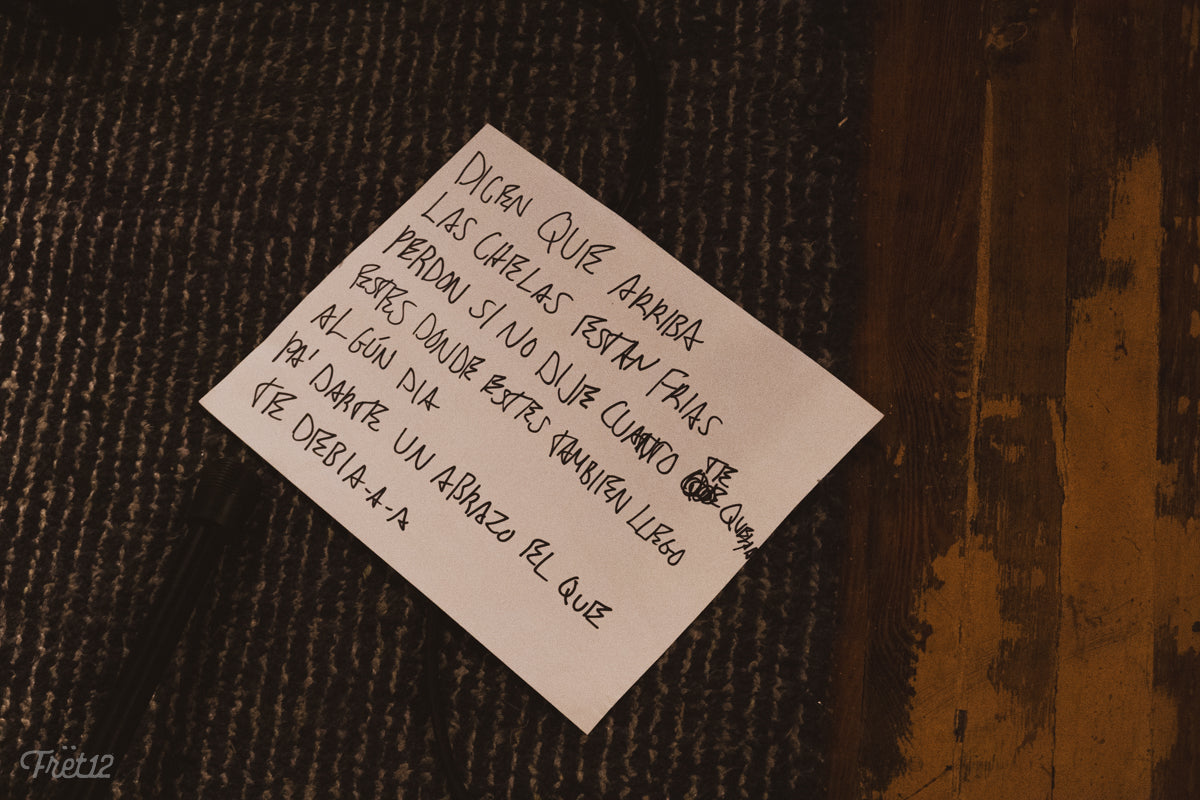 DICEN QUE ARRIBA
LAS CHELAS ESTAN FRIAS
PERDON SI NO DIJE CUANTO TE
ESTES DONDE ESTES TAMBIEN LLEGO
ALGÚN DIA
PA' DARTE UN ABRAZO EL QUE
TE DEBIA-A-A
Frët12